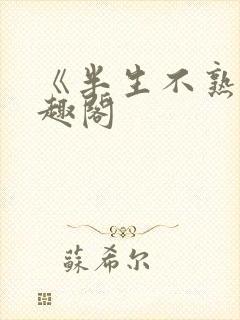 《半生不熟
趣阁
蘇希尔